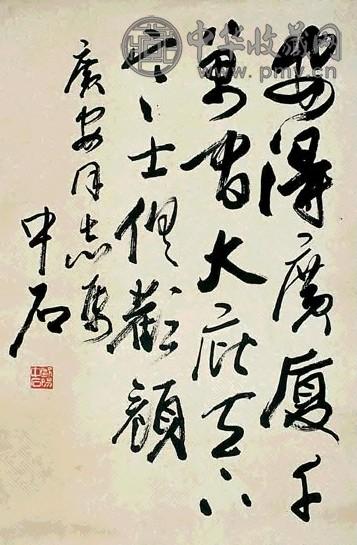 中华收藏网
安得廣廈千
萬間大庇天下
寒士俱歡顏
廣安同志属
中石